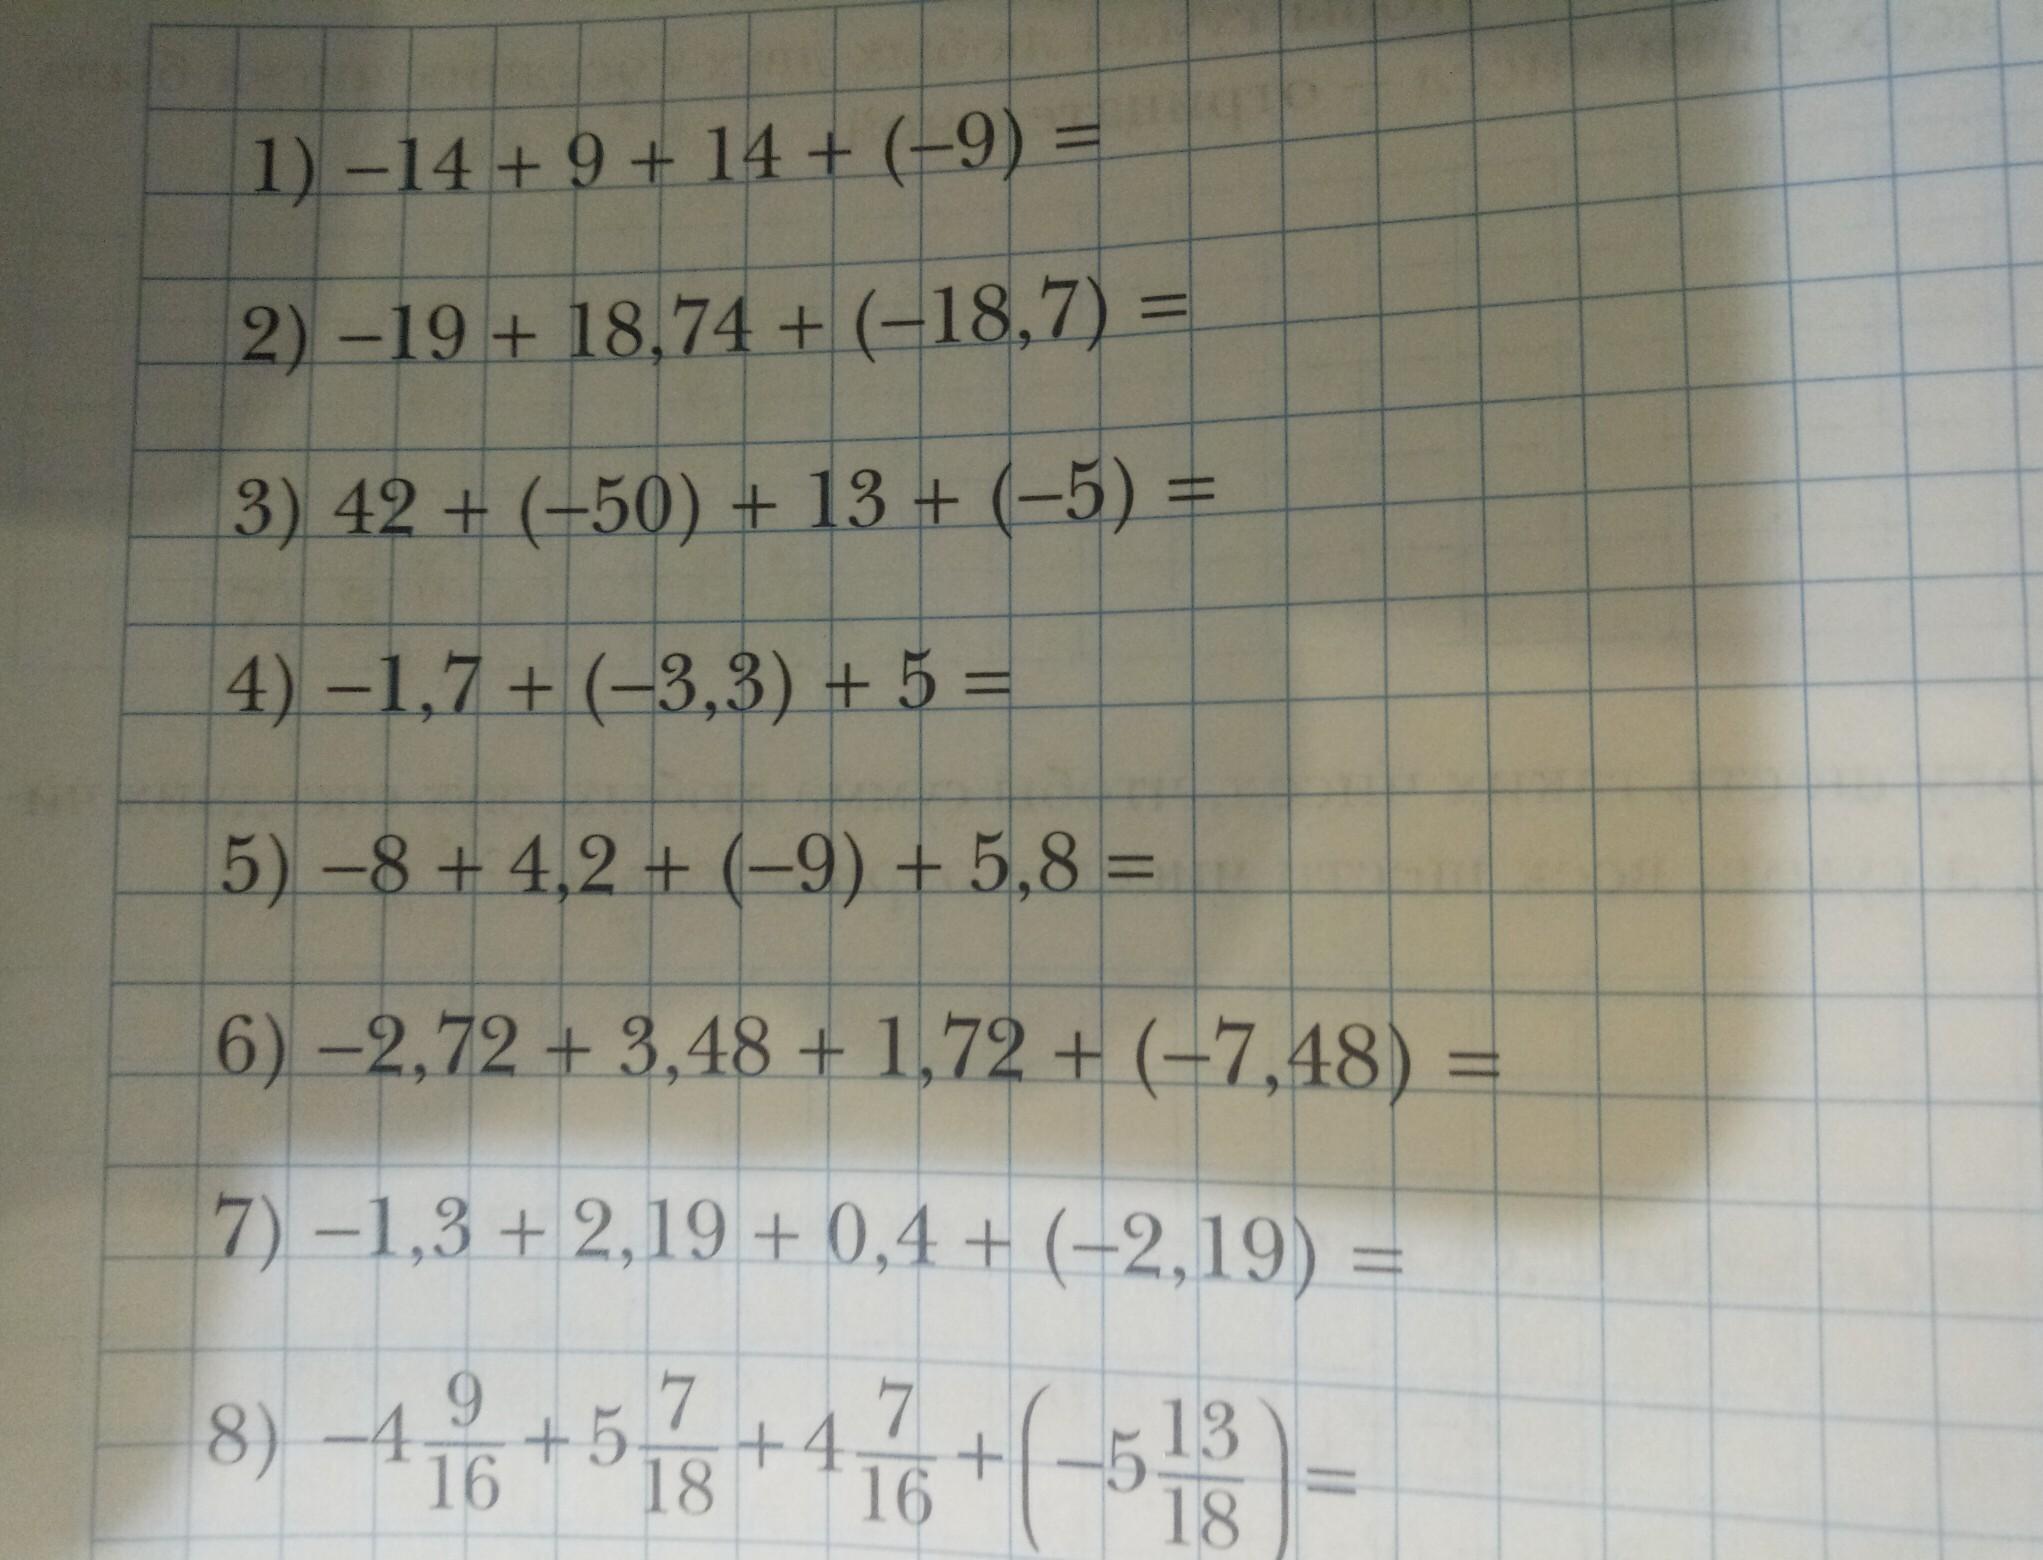 1) –14 + 9 + 14 + (–9) =
2) –19 + 18,74 + (–18,7) =
3) 42 + (–50) + 13 + (–5) =
4) –1,7 + (–3,3) + 5 =
5) –8 + 4,2 + (–9) + 5,8 =
6) –2,72 + 3,48 + 1,72 + (–7,48) =
7) –1,3 + 2,19 + 0,4 + (–2,19) =
8) –4 9/16 + 5 7/18 + 4 7/16 + (–5 13/18) =